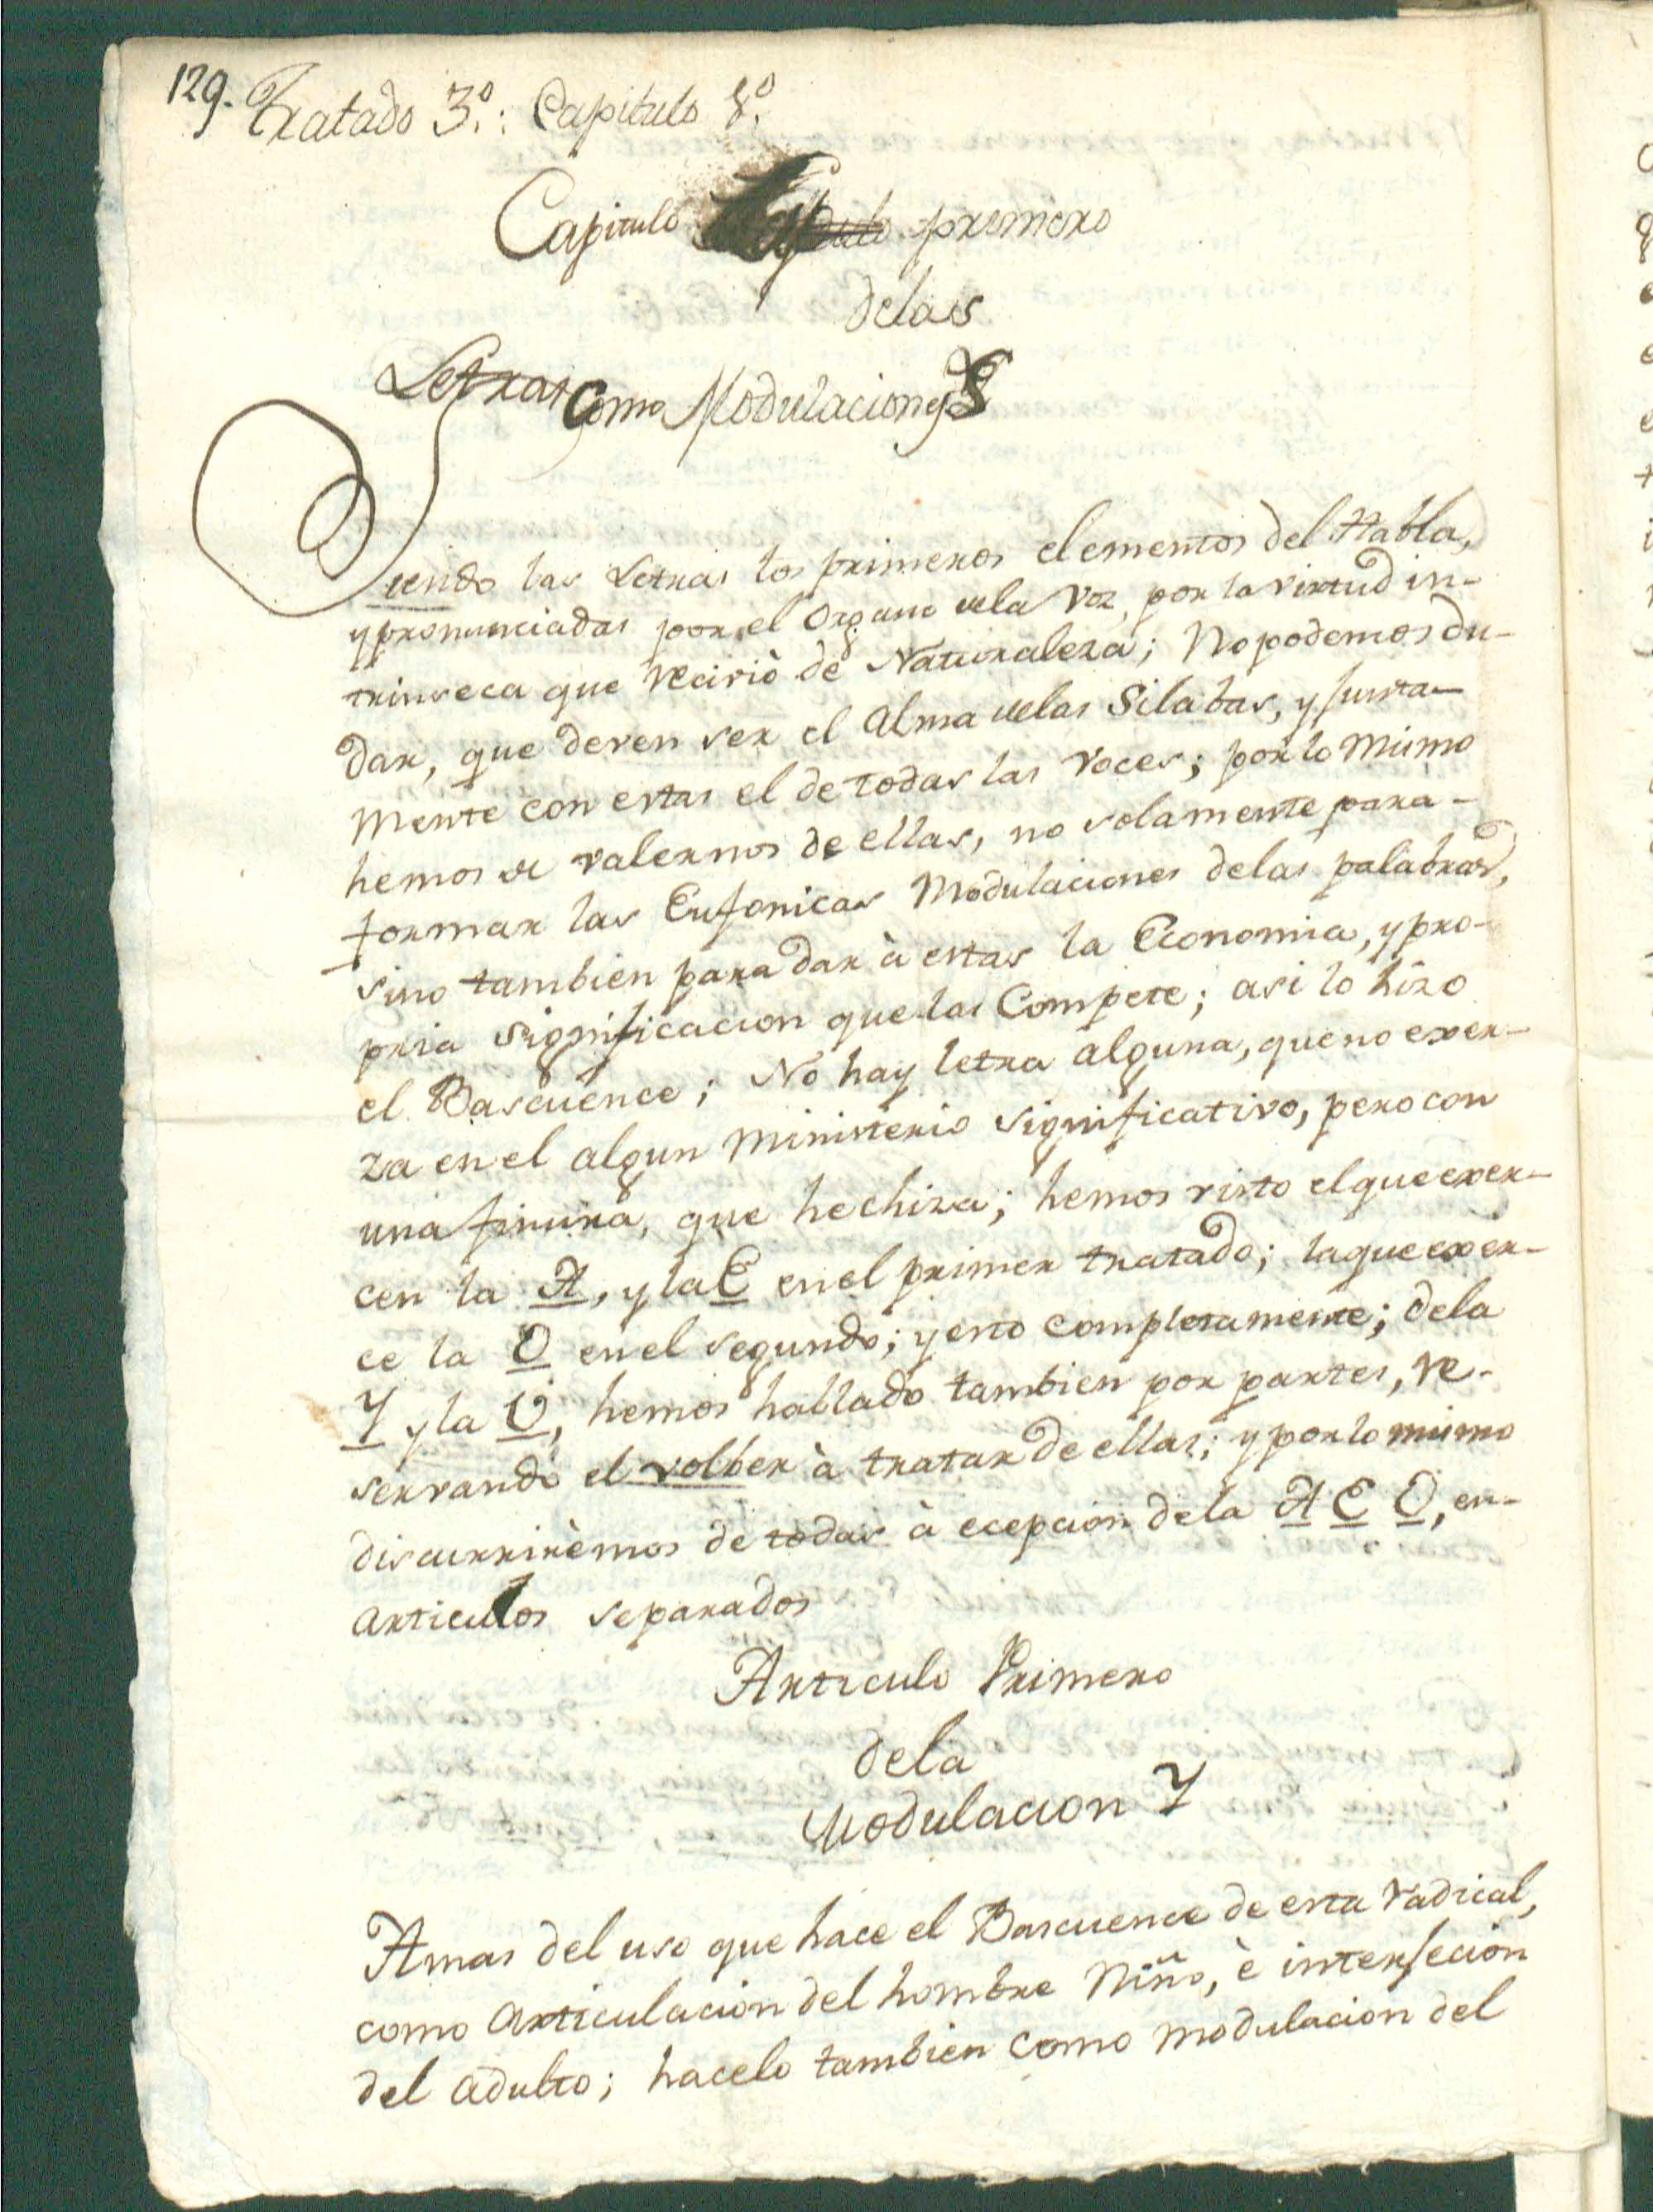 129. Tratado 3º.: Capitulo 8º.
Capitulo primero
delas
Letras Como Modulaciones
Siendo las Letras los primeros elementos del Habla,
y pronunciadas por el Organo dela Voz, por la virtud in-
trinseca que reciviò de Naturaleza; No podemos du-
dar, que deven ser el Alma delas Silabas, y junta-
mente con estas el de todas las Voces; por lo mismo
hemos de valernos de ellas, no solamente para-
formar las Eufonicas Modulaciones delas palabras,
sino tambien para dar à estas la Economia, y pro-
pria significacion que las Compete; asi lo hizo
el Bascuence; No hay letra alguna, que no exer-
za en el algun Ministerio significativo, pero con
una finura, que hechiza; hemos visto el que exer-
cen la A, y la E en el primer tratado; la que exer-
ce la O en el segundo; y esto completamente; dela
Y y la U, hemos hallado tambien por partes, re-
servando el volber à tratar de ellas; y por lo mismo
discurrirèmos de todas à ecepcion dela A E O, en-
articulos separados
Articulo Primero
dela
Modulacion Y
Amas del uso que hace el Bascuence de esta radical,
como articulacion del hombre Niño, è interjecion
del adulto; hacelo tambien como modulacion del